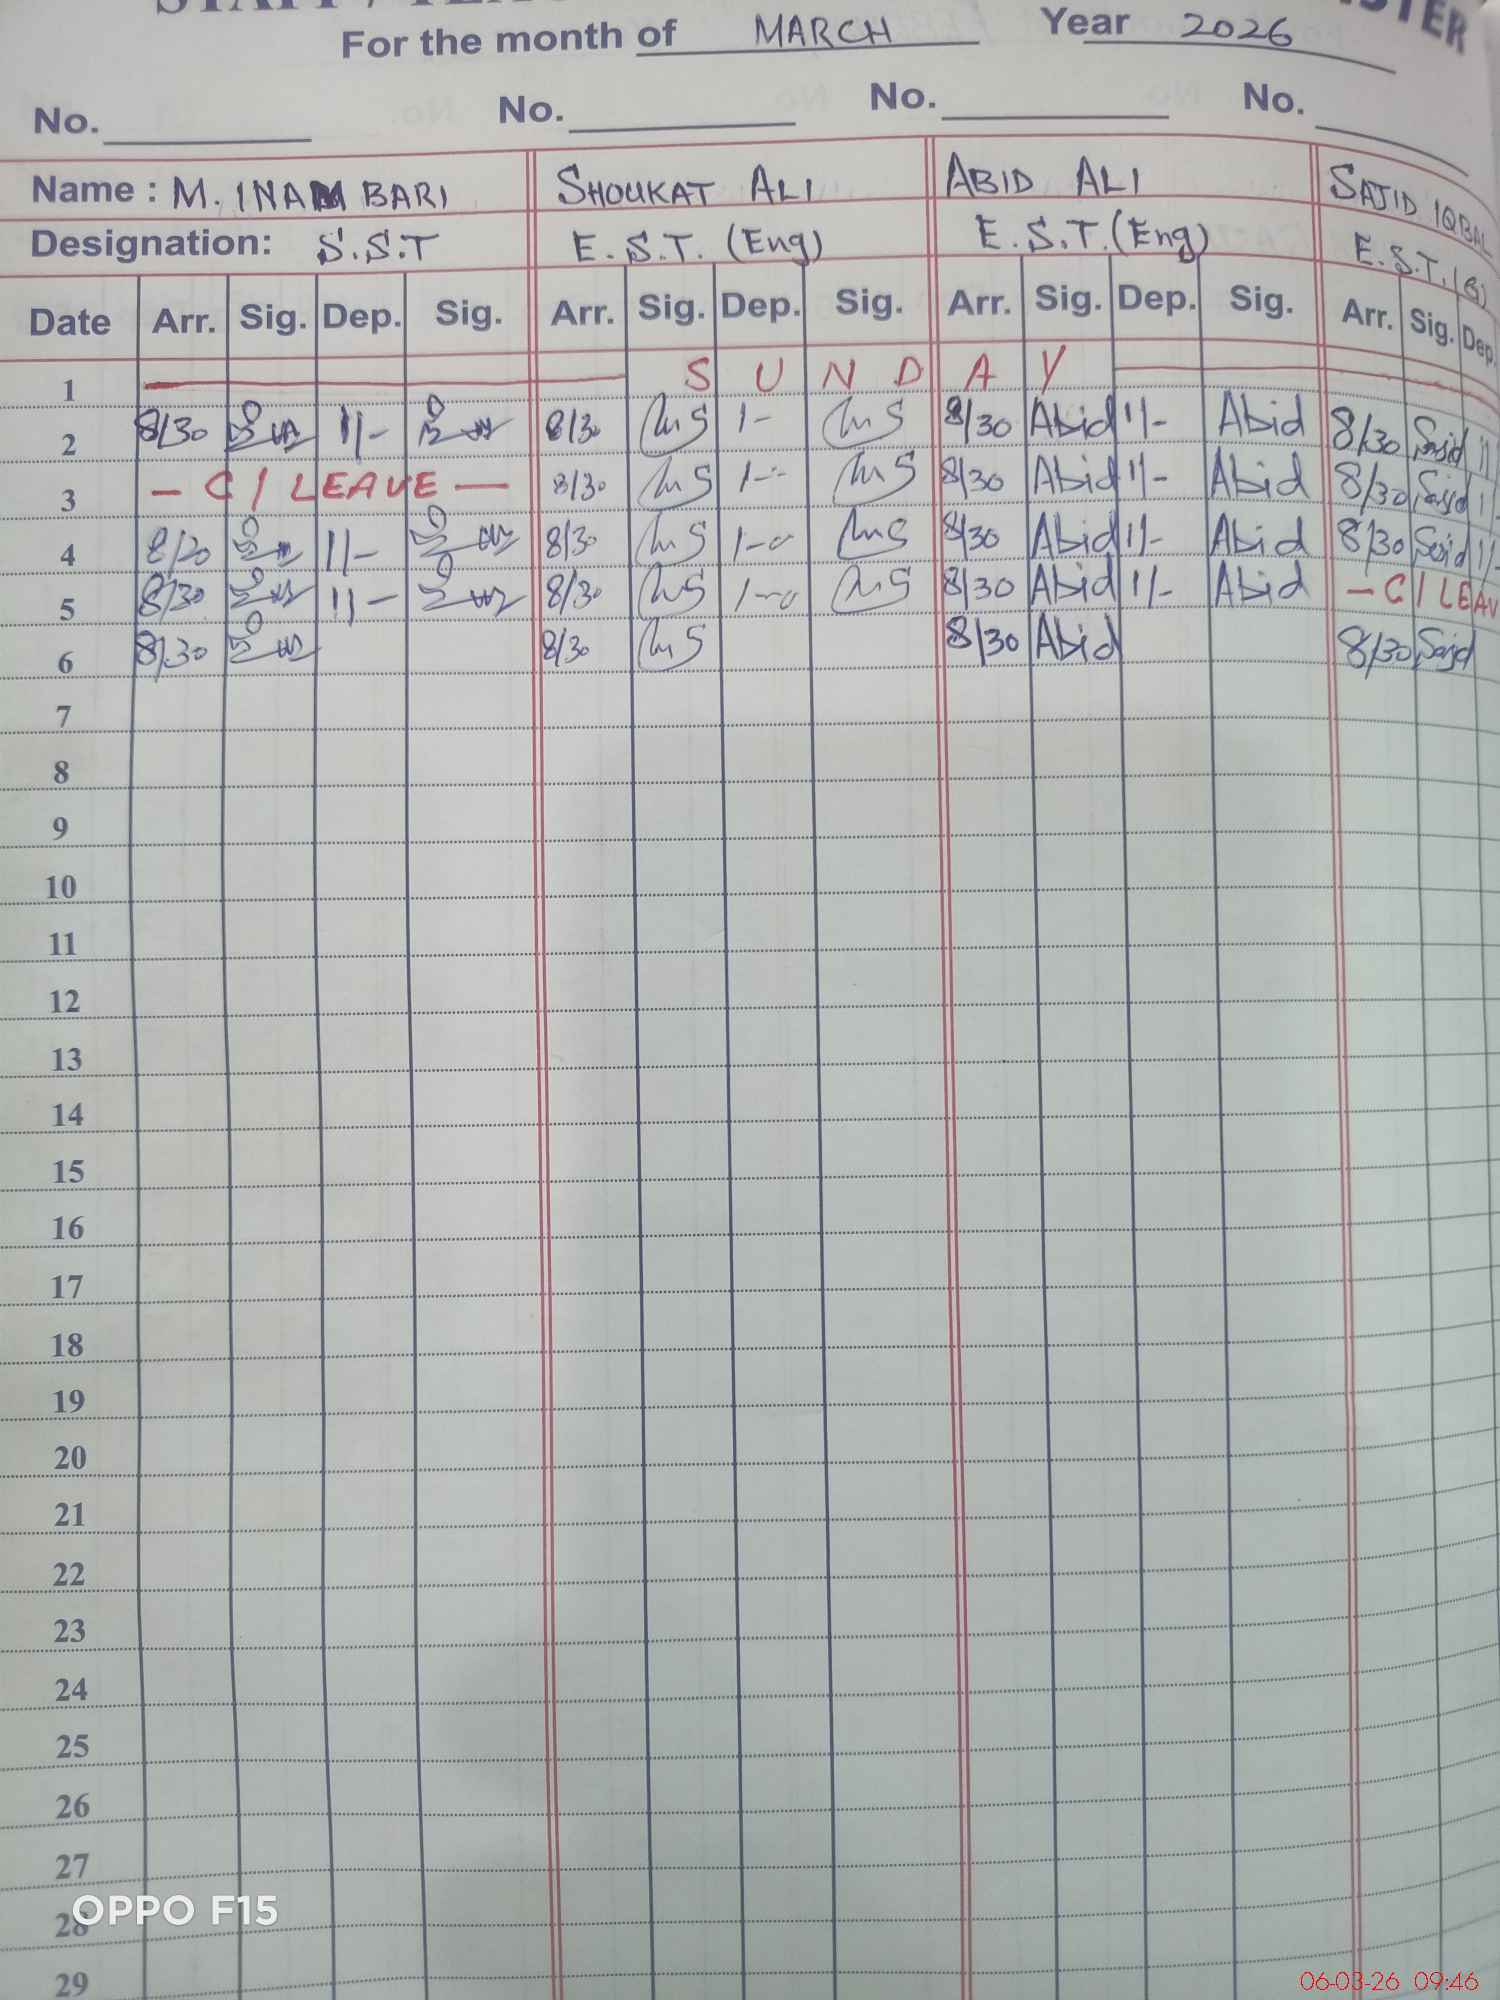 For the month of MARCH Year 2026
No. No. No. No.
Name : M. INAM BARI SHOUKAT ALI ABID ALI SAJID IQBAL
Designation: S.S.T E.S.T. (Eng) E.S.T. (Eng) E.S.T.
Date Arr. Sig. Dep. Sig. Arr. Sig. Dep. Sig. Arr. Sig. Dep. Sig. Arr. Sig. Dep.
1 SUNDAY
2 8/30 11/- 8/30 1- 8/30 Abid 11/- Abid 8/30 Sajid 11
3 - C/LEAVE - 8/30 1-- 8/30 Abid 11/- Abid 8/30 Sajid
4 8/30 11/- 8/30 1-0 8/30 Abid 11/- Abid 8/30 Sajid 11/-
5 8/30 11- 8/30 1-0 8/30 Abid 11/- Abid - C/LEAV
6 8/30 8/30 8/30 Abid 8/30 Sajid
7
8
9
10
11
12
13
14
15
16
17
18
19
20
21
22
23
24
25
26
27
28
29
OPPO F15
06-03-26 09:46